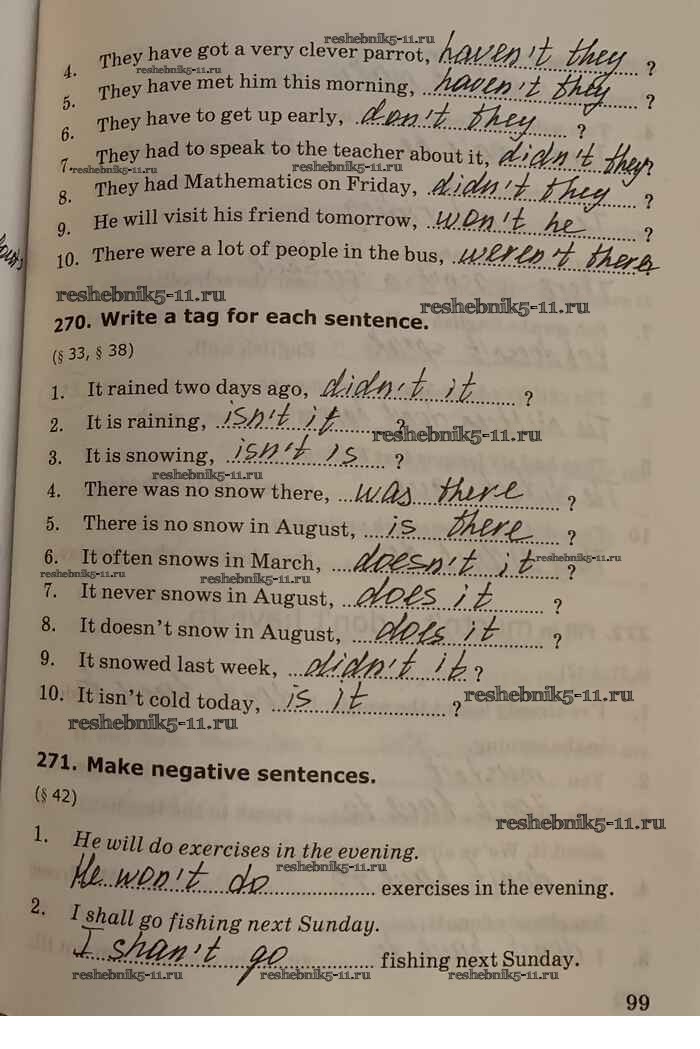 4. They have got a very clever parrot, haven't they ?
reshebnik5-11.ru
reshebnik5-11.ru
5. They have met him this morning, haven't they ?
6. They have to get up early, don't they ?
7. They had to speak to the teacher about it, didn't they?
reshebnik5-11.ru
reshebnik5-11.ru
8. They had Mathematics on Friday, didn't they ?
9. He will visit his friend tomorrow, won't he ?
10. There were a lot of people in the bus, weren't there?
reshebnik5-11.ru
reshebnik5-11.ru
270. Write a tag for each sentence.
(§ 33, § 38)
1. It rained two days ago, didn't it ?
2. It is raining, isn't it ?
reshebnik5-11.ru
3. It is snowing, isn't is ?
reshebnik5-11.ru
4. There was no snow there, was there ?
5. There is no snow in August, is there ?
6. It often snows in March, doesn't it ?
reshebnik5-11.ru
reshebnik5-11.ru
reshebnik5-11.ru
7. It never snows in August, does it ?
8. It doesn't snow in August, does it ?
9. It snowed last week, didn't it ?
10. It isn't cold today, is it ?
reshebnik5-11.ru
reshebnik5-11.ru
271. Make negative sentences.
(§ 42)
reshebnik5-11.ru
1. He will do exercises in the evening.
reshebnik5-11.ru
He won't do exercises in the evening.
2. I shall go fishing next Sunday.
I shan't go fishing next Sunday.
reshebnik5-11.ru
reshebnik5-11.ru
reshebnik5-11.ru
99